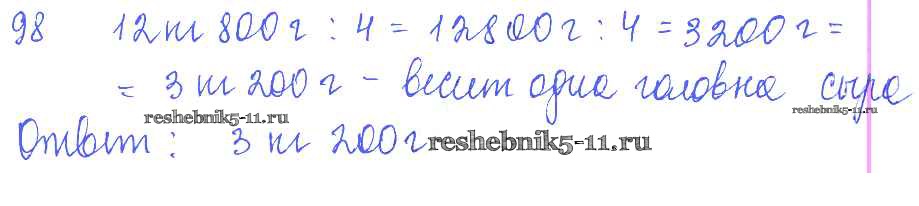 98 12 кг 800 г : 4 = 12800 г : 4 = 3200 г =
= 3 кг 200 г - весит одна головка сыра
reshebnik5-11.ru
reshebnik5-11.ru
Ответ: 3 кг 200 г
reshebnik5-11.ru